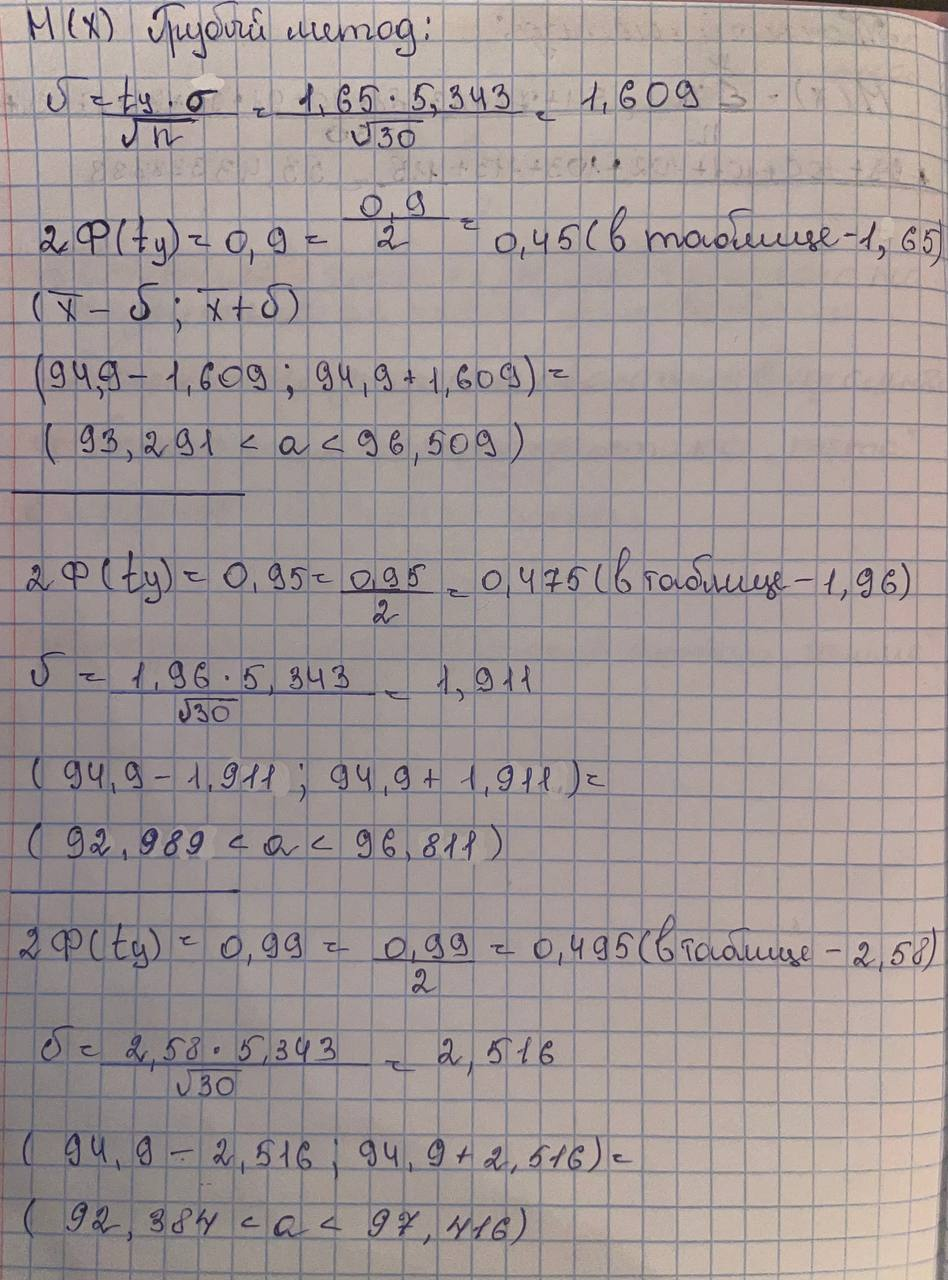 M(X) Грубый метод:
δ = tγ · σ / √n = 1,65 · 5,343 / √30 = 1,609
2Ф(tγ) = 0,9 = 0,9 / 2 = 0,45 (в таблице - 1,65)
(x̅ - δ ; x̅ + δ)
(94,9 - 1,609 ; 94,9 + 1,609) =
(93,291 < a < 96,509)
2Ф(tγ) = 0,95 = 0,95 / 2 = 0,475 (в таблице - 1,96)
δ = 1,96 · 5,343 / √30 = 1,911
(94,9 - 1,911 ; 94,9 + 1,911) =
(92,989 < a < 96,811)
2Ф(tγ) = 0,99 = 0,99 / 2 = 0,495 (в таблице - 2,58)
δ = 2,58 · 5,343 / √30 = 2,516
(94,9 - 2,516 ; 94,9 + 2,516) =
(92,384 < a < 97,416)